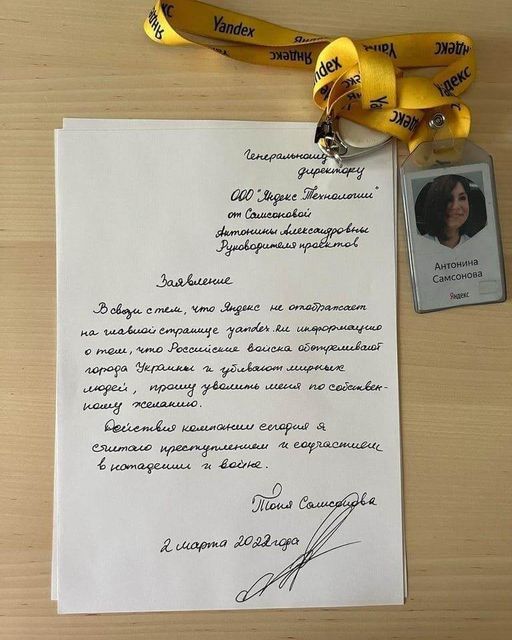 Yandex
Яндекс
Яндекс
Яндекс
Генеральному
директору
ООО "Яндекс Технологии"
от Самсоновой
Антонины Александровны
Руководителя проектов
Заявление
В связи с тем, что Яндекс не отображает
на главной странице yandex.ru информацию
о том, что Российские войска обстреливают
города Украины и убивают мирных
людей, прошу уволить меня по собствен-
ному желанию.
Действия компании сегодня я
считаю преступлением и соучастием
в нападении и войне.
Тоня Самсонова
2 марта 2022 года
Антонина
Самсонова
Яндекс